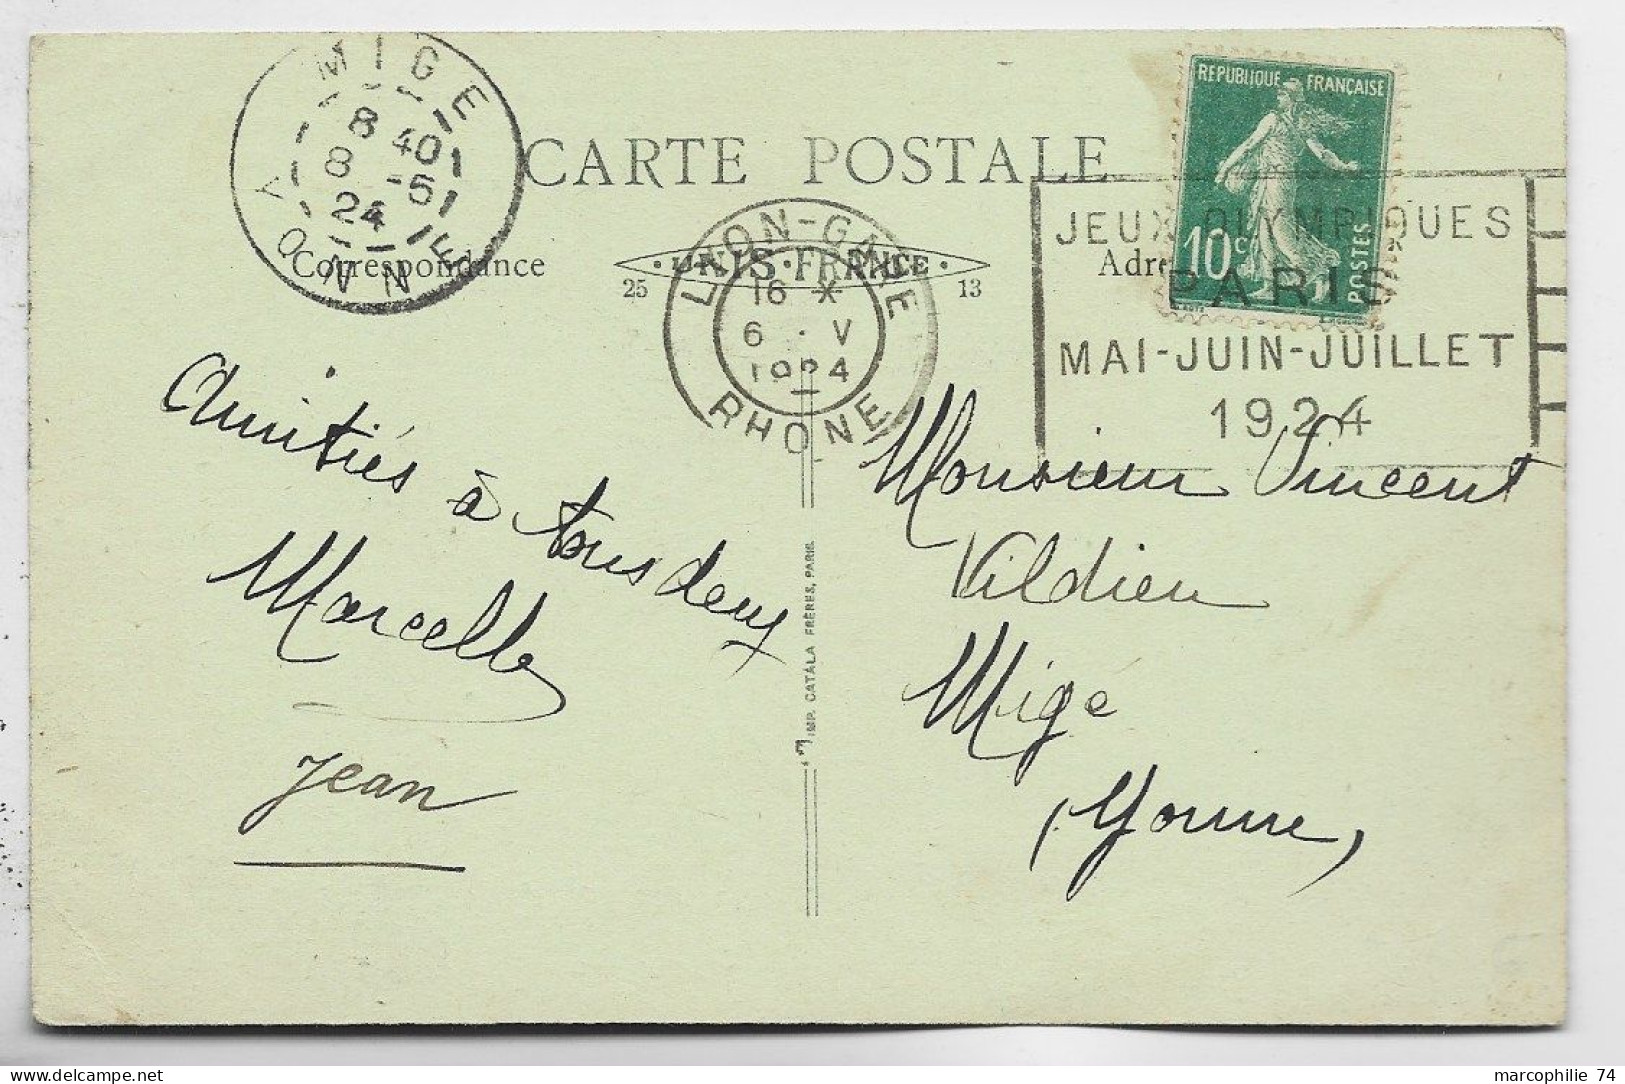 MIGE
8 40
8 -5
24
YONNE
CARTE POSTALE
REPUBLIQUE FRANÇAISE
10c
POSTES
JEUX OLYMPIQUES
PARIS
MAI-JUIN-JUILLET
1924
LYON-GARE
16 X
6 · V
1924
RHONE
Correspondance
25 · UNIS · FRANCE · 13
Amitiés à tous deux
Marcelle
Jean
IMP. CATALA FRÈRES, PARIS.
Monsieur Vincent
Vildieu
Migé
(Yonne)
marcophilie 74